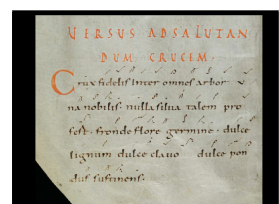 VERSUS AD SALUTAN
DUM CRUCEM
Crux fidelis inter omnes arbor
una nobilis nulla silua talem pro
fert · fronde flore germine · dulce
lignum dulce clauo dulce pon
dus sustinens·